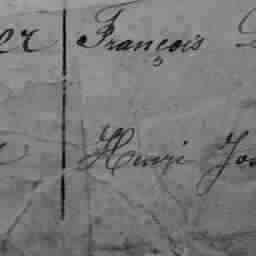 er François
Henri Jos